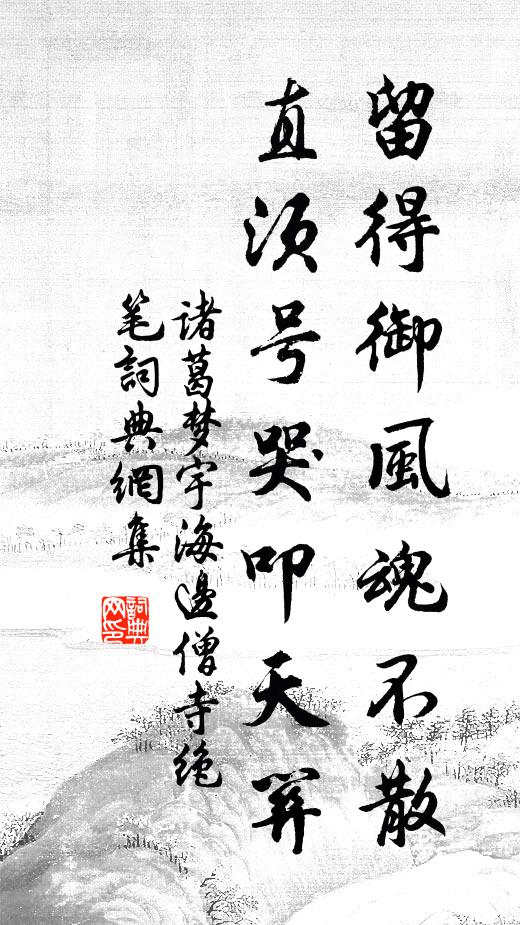 留得御風魂不散
直须号哭叩天関
诸葛梦宇海邊僧寺绝
笔詞典網集
詞典
网印